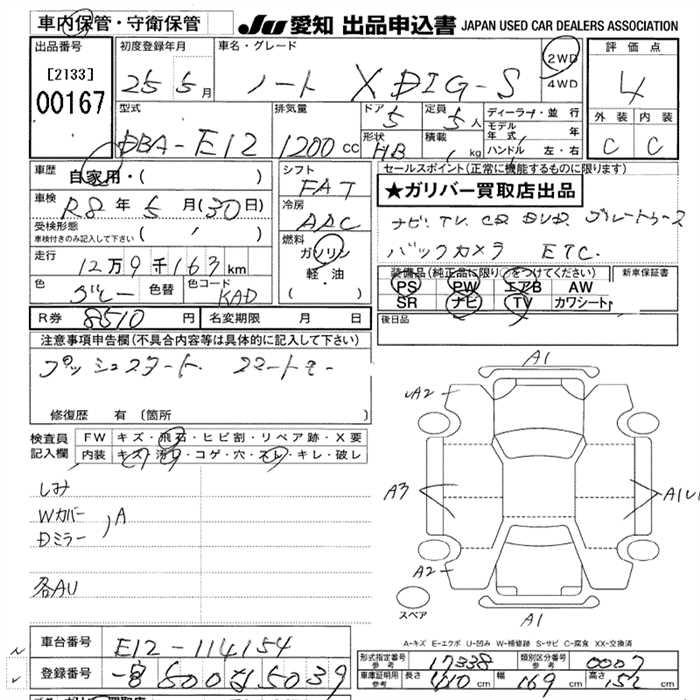 車内保管・守衛保管
JU 愛知 出品申込書 JAPAN USED CAR DEALERS ASSOCIATION
出品番号
[2133]
00167
初度登録年月
25年 5月
車名・グレード
ノート X DIG-S
2WD
4WD
評価点
4
外装 内装
C C
型式
DBA-E12
排気量
1200 cc
ドア
5
形状
HB
定員
5人
積載
kg
ディーラー・並行
モデル年式 年
ハンドル 左・右
車歴
自家用・( )
車検
R8年 5月(30日)
受検形態
車検付きのみ記入して下さい ( / )
走行
12万9千163km
色
グレー
色替
色コード
KAD
シフト
FAT
冷房
AAC
燃料
ガソリン
軽・油
( )
セールスポイント(正常に機能するものに限ります)
★ガリバー買取店出品
ナビ. TV. CD. DVD. ブルートゥース
バックカメラ ETC.
装備品(純正品に限り○をつけてください)
PS PW エアB AW
SR ナビ TV カワシート
新車保証書
後日品
R券 8510円
名変期限 月 日
注意事項申告欄(不具合内容等は具体的に記入して下さい)
プッシュスタート スマートキー
修復歴 有 (箇所
検査員
記入欄
FW キズ・飛石・ヒビ割・リペア跡・X要
内装 キズ・汚れ・コゲ・穴・スレ・キレ・破レ
しみ
Wカバー
Dミラー
A
各AU
A1
A2
A3
A2
A1
スペア
A-キズ E-エクボ U-凹み W-補修跡 S-サビ C-腐食 XX-交換済
車台番号
E12-114154
登録番号
500
5039
形式指定番号
参考
17338
類別区分番号
参考
0007
車庫証明用
参考
長さ 410cm
幅 169cm
高さ 152cm